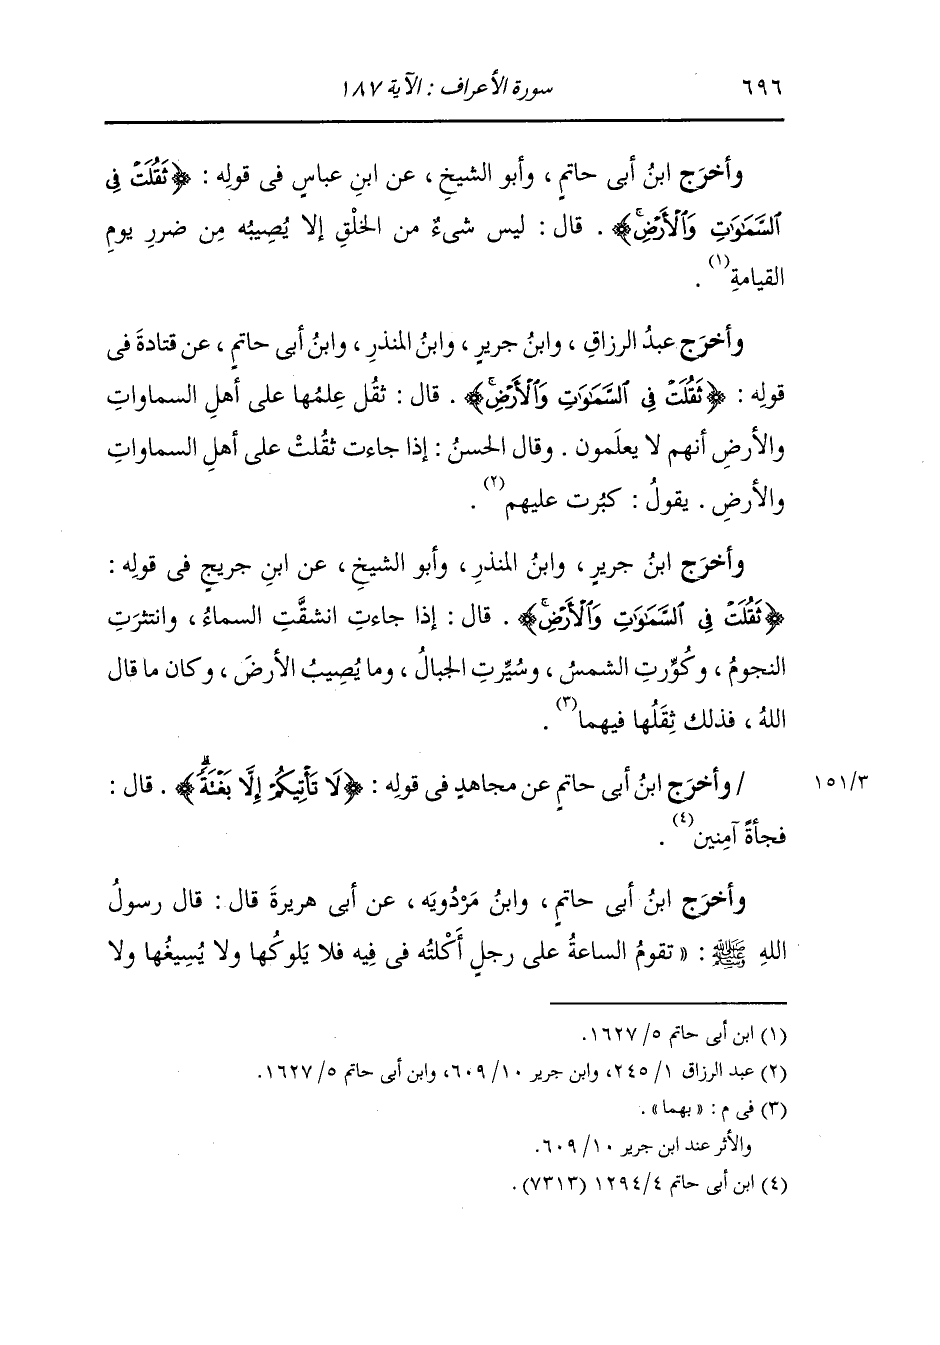 ٦٩٦ سورة الأعراف : الآية ١٨٧
وأخرَج ابنُ أبى حاتمٍ ، وأبو الشيخِ ، عن ابنِ عباسٍ فى قولِه : ﴿ثَقُلَتْ فِى
السَّمَٰوَٰتِ وَٱلْأَرْضِۚ﴾ . قال : ليس شىءٌ من الخلْقِ إلا يُصِيبُه مِن ضررِ يومِ
القيامةِ(١) .
وأخرَج عبدُ الرزاقِ ، وابنُ جريرٍ ، وابنُ المنذرِ ، وابنُ أبى حاتمٍ ، عن قتادةَ فى
قولِه : ﴿ثَقُلَتْ فِى السَّمَٰوَٰتِ وَٱلْأَرْضِۚ﴾ . قال : ثقُل عِلمُها على أهلِ السماواتِ
والأرضِ أنهم لا يعلَمون . وقال الحسنُ : إذا جاءت ثقُلتْ على أهلِ السماواتِ
والأرضِ . يقولُ : كبُرت عليهم(٢) .
وأخرَج ابنُ جريرٍ ، وابنُ المنذرِ ، وأبو الشيخِ ، عن ابنِ جريجٍ فى قولِه :
﴿ثَقُلَتْ فِى السَّمَٰوَٰتِ وَٱلْأَرْضِۚ﴾ . قال : إذا جاءتِ انشقَّتِ السماءُ ، وانتثرَتِ
النجومُ ، وكُوِّرتِ الشمسُ ، وسُيِّرتِ الجبالُ ، وما يُصِيبُ الأرضَ ، وكان ما قال
اللهُ ، فذلك ثِقَلُها فيهما(٣) .
/ وأخرَج ابنُ أبى حاتمٍ عن مجاهدٍ فى قولِه : ﴿لَا تَأْتِيكُمْ إِلَّا بَغْتَةًۗ﴾ . قال : ١٥١/٣
فجأةً آمِنين(٤) .
وأخرَج ابنُ أبى حاتمٍ ، وابنُ مَرْدُويَه ، عن أبى هريرةَ قال : قال رسولُ
اللهِ ﷺ : « تقومُ الساعةُ على رجلٍ أَكْلتُه فى فِيه فلا يَلوكُها ولا يُسِيغُها ولا
(١) ابن أبى حاتم ٥/ ١٦٢٧.
(٢) عبد الرزاق ١/ ٢٤٥، وابن جرير ١٠/ ٦٠٩، وابن أبى حاتم ٥/ ١٦٢٧.
(٣) فى م : « بهما » .
والأثر عند ابن جرير ١٠/ ٦٠٩.
(٤) ابن أبى حاتم ٤/ ١٢٩٤ (٧٣١٣) .